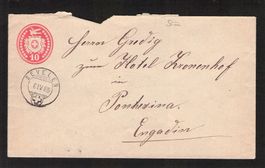 10
Herrn Gredig
zum Hotel Kronenhof
in
Pontresina
Engadin
SEVELEN